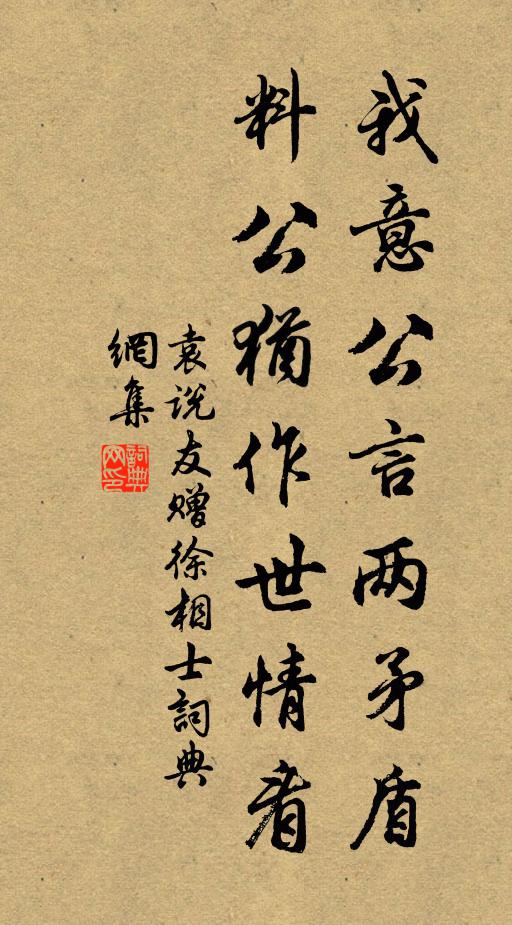 我意公言两矛盾
料公犹作世情看
袁说友赠徐相士詞典
網集
詞典
网印